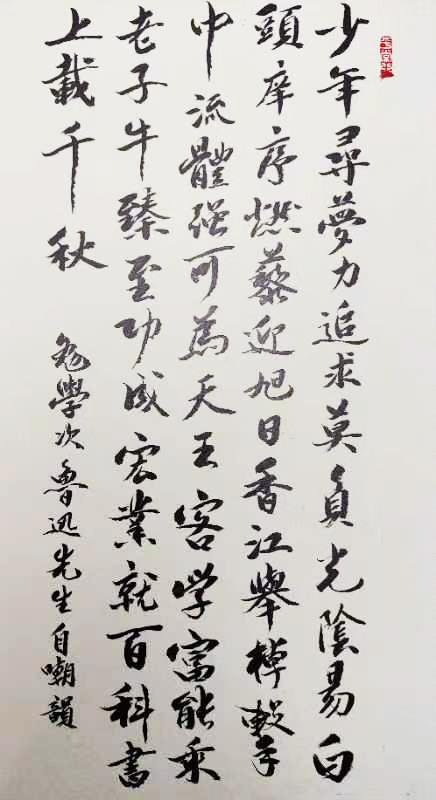 少年尋夢力追求莫負光陰易白
頭庠序燃藜迎旭日香江舉棹擊
中流體強可為天王客學富能乘
老子牛臻至功成宏業就百科書
上載千秋
勉學次魯迅先生自嘲韻